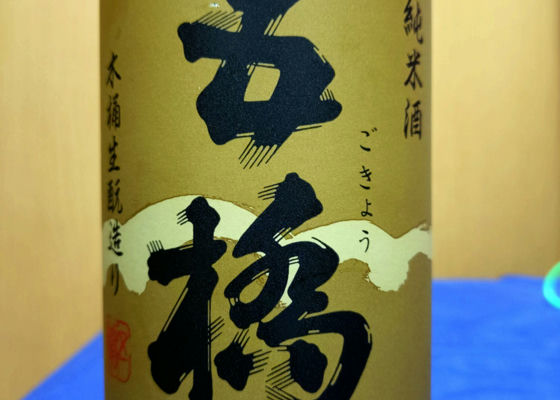 純米酒
五橋
ごきょう
木桶生酛造り